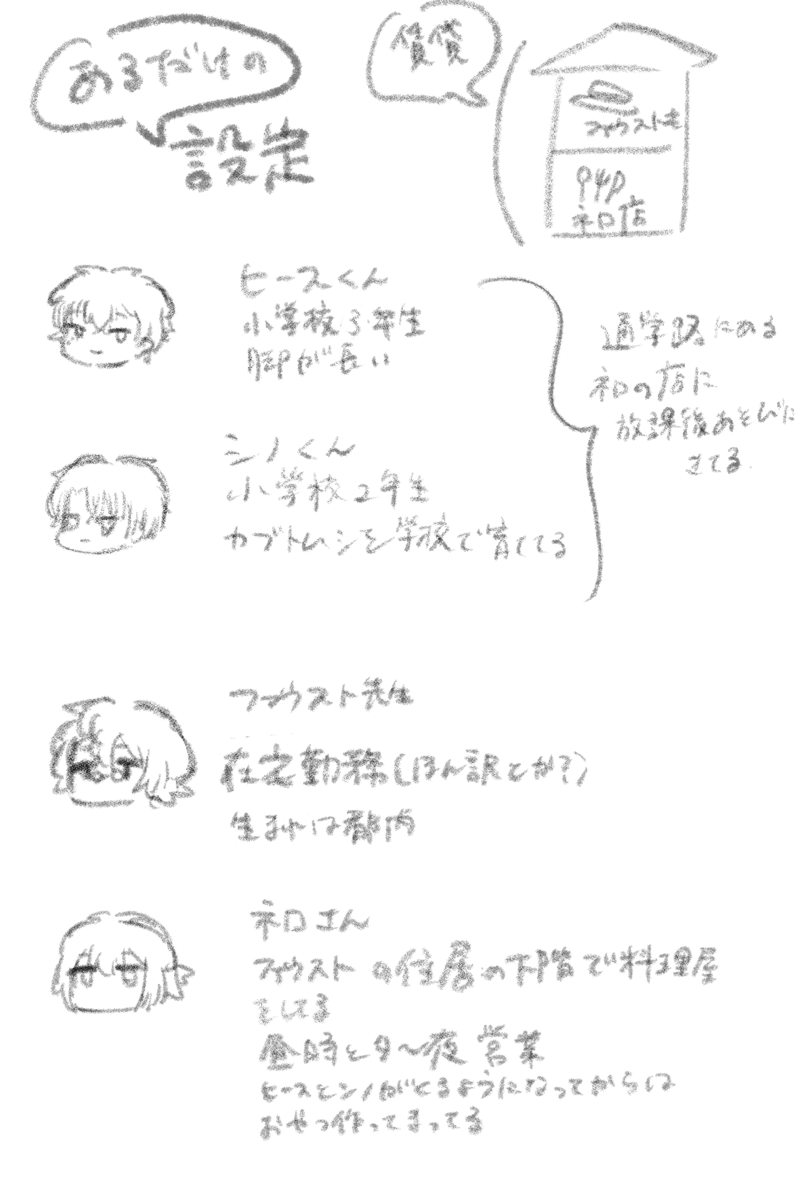 あるだけの
設定
賃貸
ファウスト宅
ネロ店
ヒースくん
小学校3年生
脚が長い
シノくん
小学校2年生
カブトムシを学校で育ててる
通学路にある
ネロの店に
放課後あそびに
きてる
ファウスト先生
在宅勤務(ほん訳とか?)
生まれは都内
ネロさん
ファウストの住居の下階で料理屋
をしてる
昼時と夕〜夜営業
ヒースとシノがくるようになってからは
おやつ作ってまってる